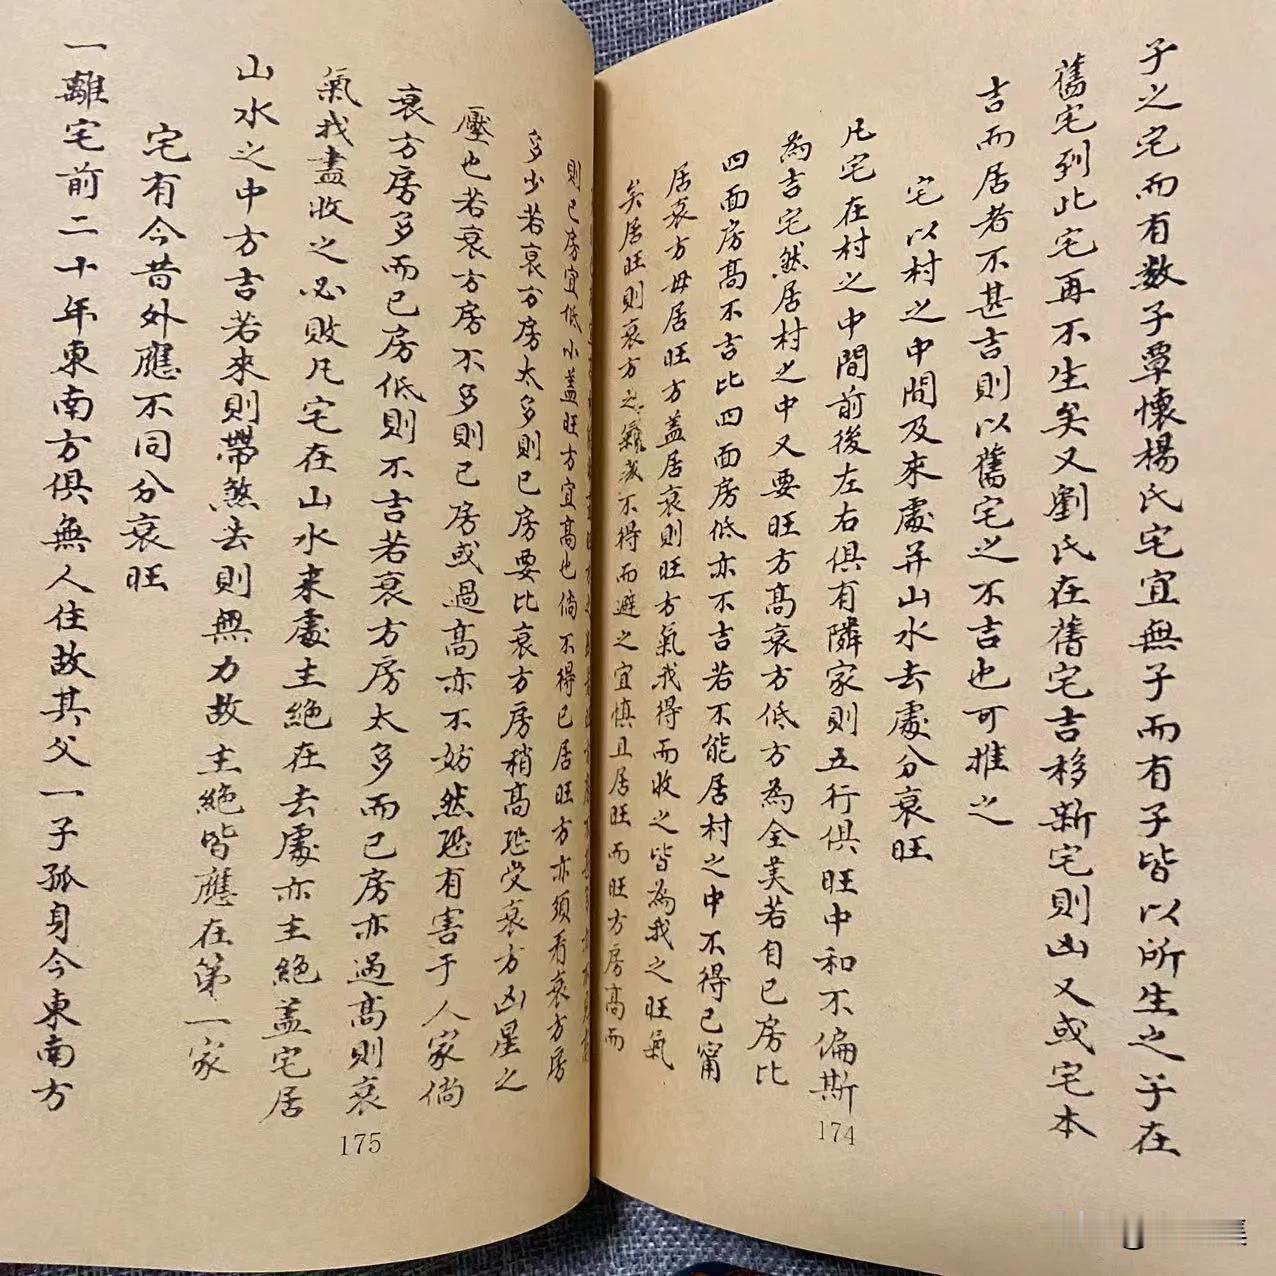 子之宅而有数子覃懷楊氏宅宜無子而有子皆以所生之子在
舊宅到此宅再不生矣又劉氏在舊宅吉移新宅則凶又或宅本
吉而居者不甚吉則以舊宅之不吉也可推之
宅以村之中間及來處并山水去處分衰旺
凡宅在村之中間前後左右俱有隣家則五行俱旺中和不偏斯
為吉宅然居村之中又要旺方高衰方低方為全美若自己房比
四面房高不吉比四面房低亦不吉若不能居村之中不得已甯
居衰方毋居旺方盖居衰則旺方氣我得而收之皆為我之旺氣
矣居旺則衰方之氣我不得而避之宜慎且居旺而旺方房高而
174
則己房宜低小盖旺方宜高也倘不得已居旺方亦須看衰方房
多少若衰方房太多則己房要比衰方房稍高恐受衰方凶星之
壓也若衰方房不多則己房或過高亦不妨然恐有害于人家倘
衰方房多而己房低則不吉若衰方房太多而己房亦過高則衰
氣我盡收之必敗凡宅在山水来處主絶在去處亦主絶盖宅居
山水之中方吉若來則帶煞去則無力故主絶皆應在第一家
宅有今昔外應不同分衰旺
一離宅前二十年東南方俱無人住故其父一子孤身今東南方
175